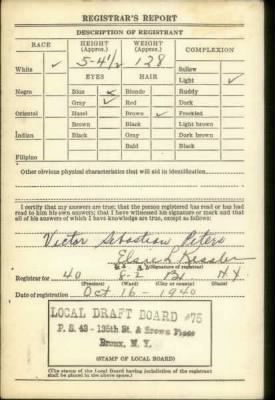 REGISTRAR'S REPORT
DESCRIPTION OF REGISTRANT
RACE HEIGHT (Approx.) WEIGHT (Approx.) COMPLEXION
White ✓ 5-4½ 128 Sallow
EYES HAIR Light ✓
Negro Blue Blonde Ruddy
Gray ✓ Red Dark
Oriental Hazel Brown ✓ Freckled
Brown Black Light brown
Indian Black Gray Dark brown
Bald Black
Filipino
Other obvious physical characteristics that will aid in identification
I certify that my answers are true; that the person registered has read or has had
read to him his own answers; that I have witnessed his signature or mark and that
all of his answers of which I have knowledge are true, except as follows:
Victor Sebastian Peters
Elsie L Kessler
(Signature of registrar)
Registrar for 40 8-2 BX N.Y.
(Precinct) (Ward) (City or county) (State)
Date of registration Oct 16 - 1940
LOCAL DRAFT BOARD #75
P. S. 43 - 135th St. & Brown Place
Bronx, N. Y.
(STAMP OF LOCAL BOARD)
(The stamp of the Local Board having jurisdiction of the registrant
shall be placed in the above space.)